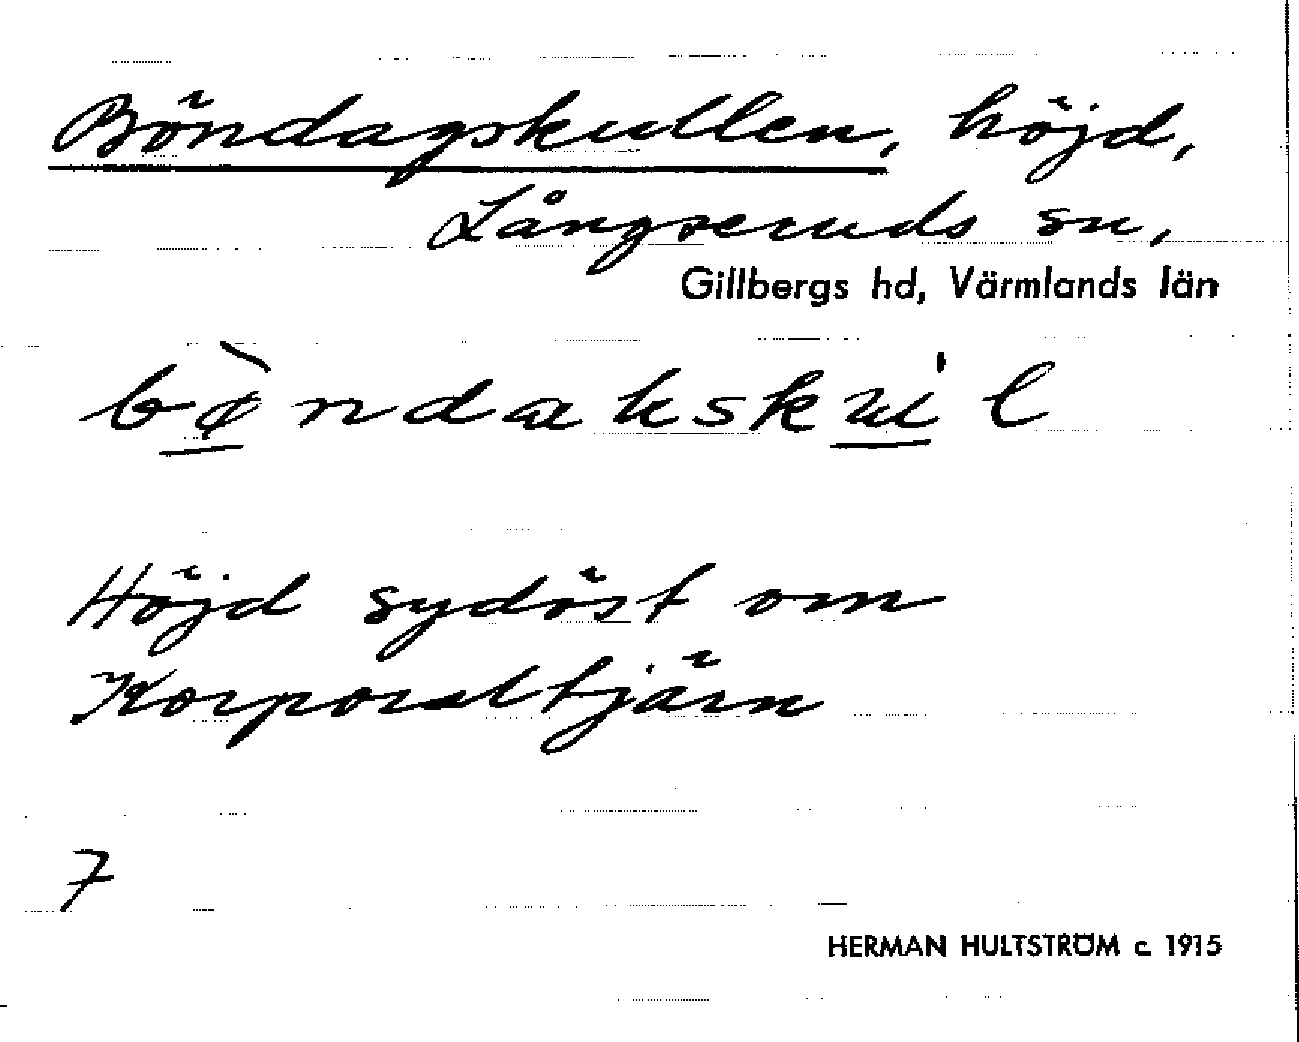 Böndagskullen, höjd,
Långseruds sn,
Gillbergs hd, Värmlands län
Höjd sydöst om
Korporaltjärn
7
HERMAN HULTSTRÖM c. 1915